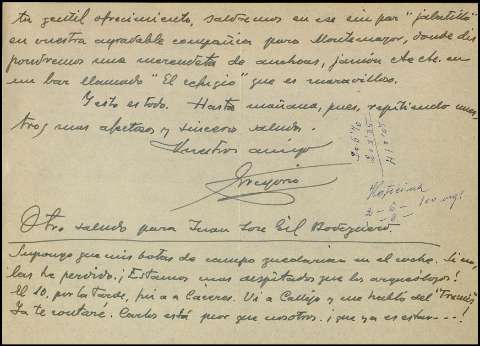 tu gentil ofrecimiento, saldremos en ese sin par "jabatillo"
en vuestra agradable compañía para Montemayor, donde dis
pondremos una merendeta de anchoas, jamón etc etc. en
un bar llamado "El refugio" que es maravilloso.
Y esto es todo. Hasta mañana, pues, repitiendo nues
tros mas afectuosos y sinceros saludos.
Vuestros amigos
Gregorio
Otro saludo para Juan José Gil Bodeguero.
Supongo que mis botas de campo quedarían en el coche. Si no,
las he perdido. ¡Estamos mas despistados que los arqueólogos!
El 10, por la tarde, fui a Cáceres. Vi a Callejo y me habló del "Francés"
Ya te contaré. Carlos está peor que nosotros. ¡que ya es estar---!
100 mg.